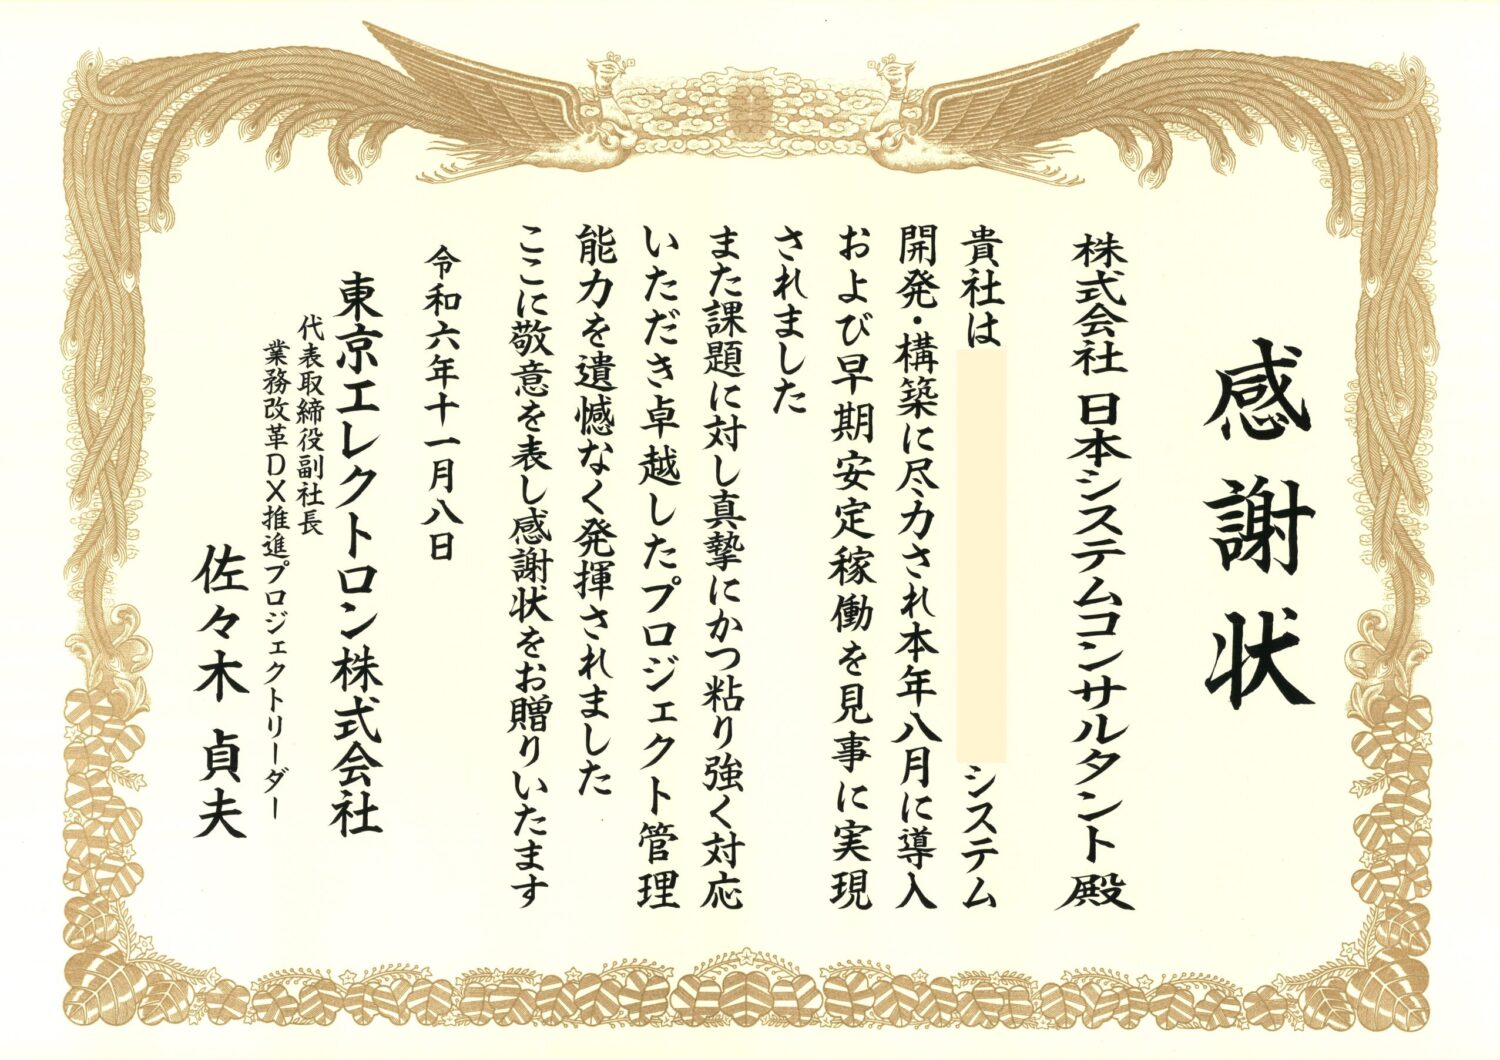 感謝状
株式会社 日本システムコンサルタント 殿
貴社は システム
開発・構築に尽力され本年八月に導入
および早期安定稼働を見事に実現
されました
また課題に対し真摯にかつ粘り強く対応
いただき卓越したプロジェクト管理
能力を遺憾なく発揮されました
ここに敬意を表し感謝状をお贈りいたます
令和六年十一月八日
東京エレクトロン株式会社
代表取締役副社長
業務改革DX推進プロジェクトリーダー
佐々木 貞夫